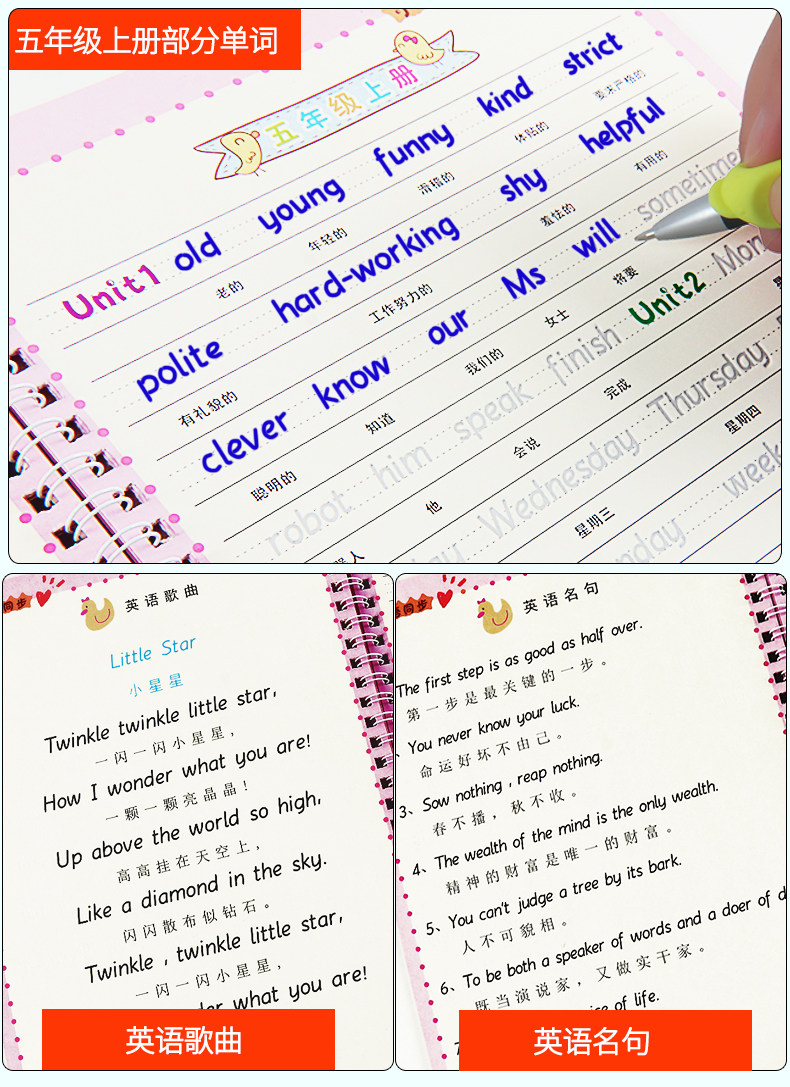 五年级上册部分单词
五年级上册
Unit1 old young funny kind strict
老的 年轻的 滑稽的 体贴的 要求严格的
polite hard-working shy helpful
有礼貌的 工作努力的 羞怯的 有用的
clever know our Ms will sometime
聪明的 知道 我们的 女士 将要
robot him speak finish Unit2 Mon
器人 他 会说 完成
Wednesday Thursday
星期三 星期四
week
英语歌曲
Little Star
小星星
Twinkle twinkle little star,
一闪一闪小星星,
How I wonder what you are!
一颗一颗亮晶晶!
Up above the world so high,
高高挂在天空上,
Like a diamond in the sky.
闪闪散布似钻石。
Twinkle , twinkle little star,
一闪一闪小星星,
what you are!
英语歌曲
同步
英语名句
The first step is as good as half over.
第一步是最关键的一步。
、You never know your luck.
命运好坏不由己。
3、Sow nothing , reap nothing.
春不播，秋不收。
4、The wealth of the mind is the only wealth.
精神的财富是唯一的财富。
5、You can't judge a tree by its bark.
人不可貌相。
6、To be both a speaker of words and a doer of d
既当演说家，又做实干家。
of life.
英语名句